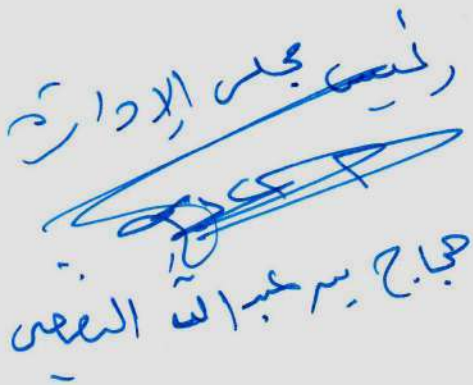 رئيس مجلس الإدارة
حجاج بن عبد الله